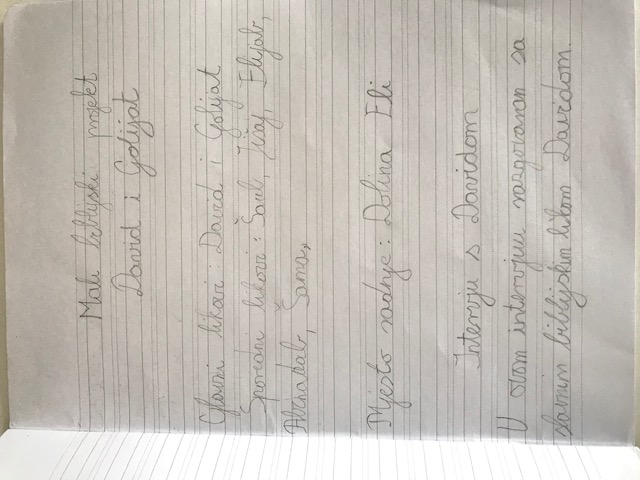 Mali biblijski projekt
David i Golijat
Glavni likovi: David i Golijat
Sporedni likovi: Šaul, Jišaj, Elijab,
Abinadab, Šama,
Mjesto radnje: Dolina Eli
Intervju s Davidom
U ovom intervjuu razgovaram sa
slavnim biblijskim likom Davidom.